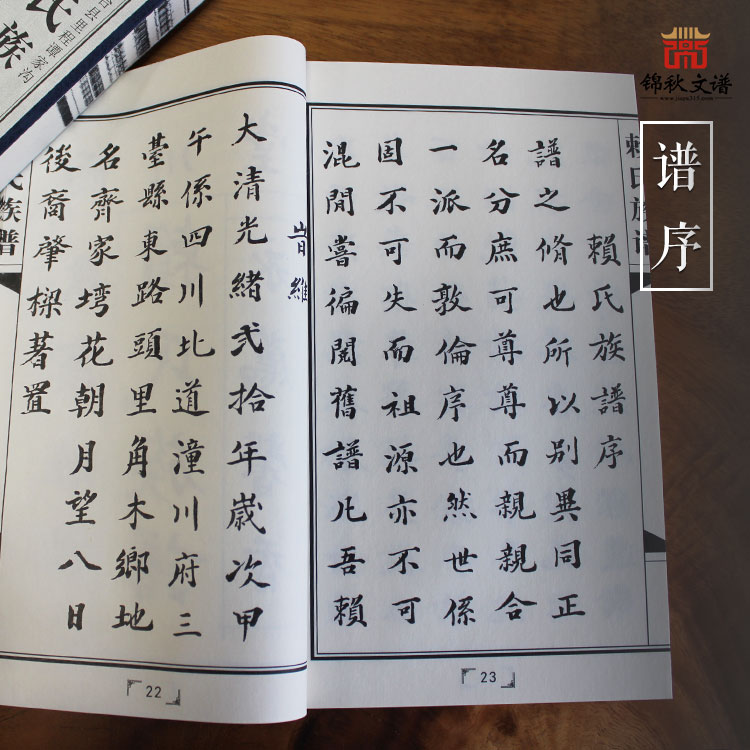 锦秋文谱
谱序
賴氏族譜序
譜之脩也所以别異同正
名分庶可尊尊而親親合
一派而敦倫序也然世係
固不可失而祖源亦不可
混閒嘗徧閱舊譜凡吾賴
23
旹維
大清光緒弍拾年歲次甲
午係四川北道潼川府三
臺縣東路頭里角木鄉地
名齊家塆花朝月望八日
後裔肇樑著置
22
氏族譜
台县里程谭家沟
氏族